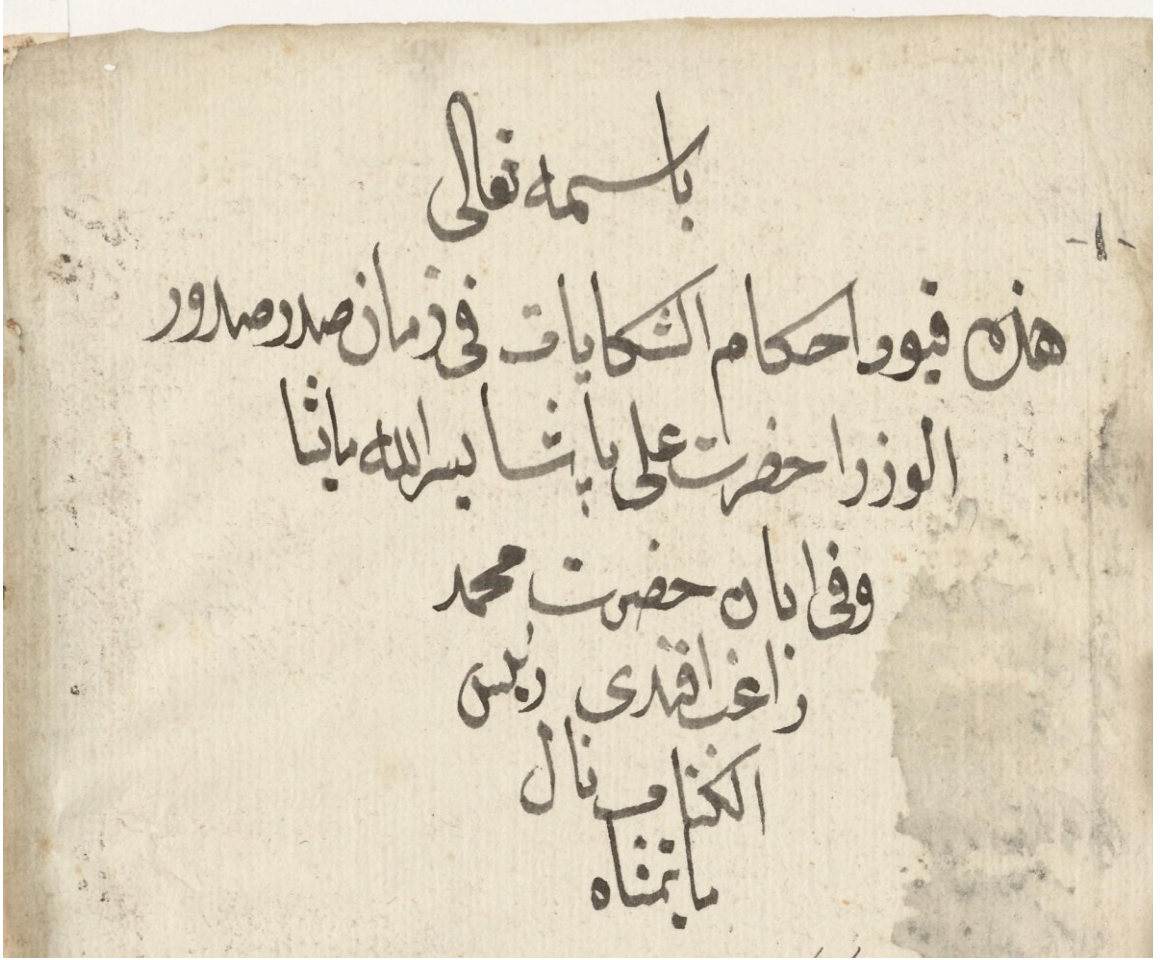 باسمه تعالى
-١-
هذه قيود احكام الشكايات فى زمان صدر صدور
الوزرا حضرت على پاشا يسر الله مايشا
وفى ابان حضرت محمد
راغب افندى رئيس
الكتاب نال
ما يتمناه